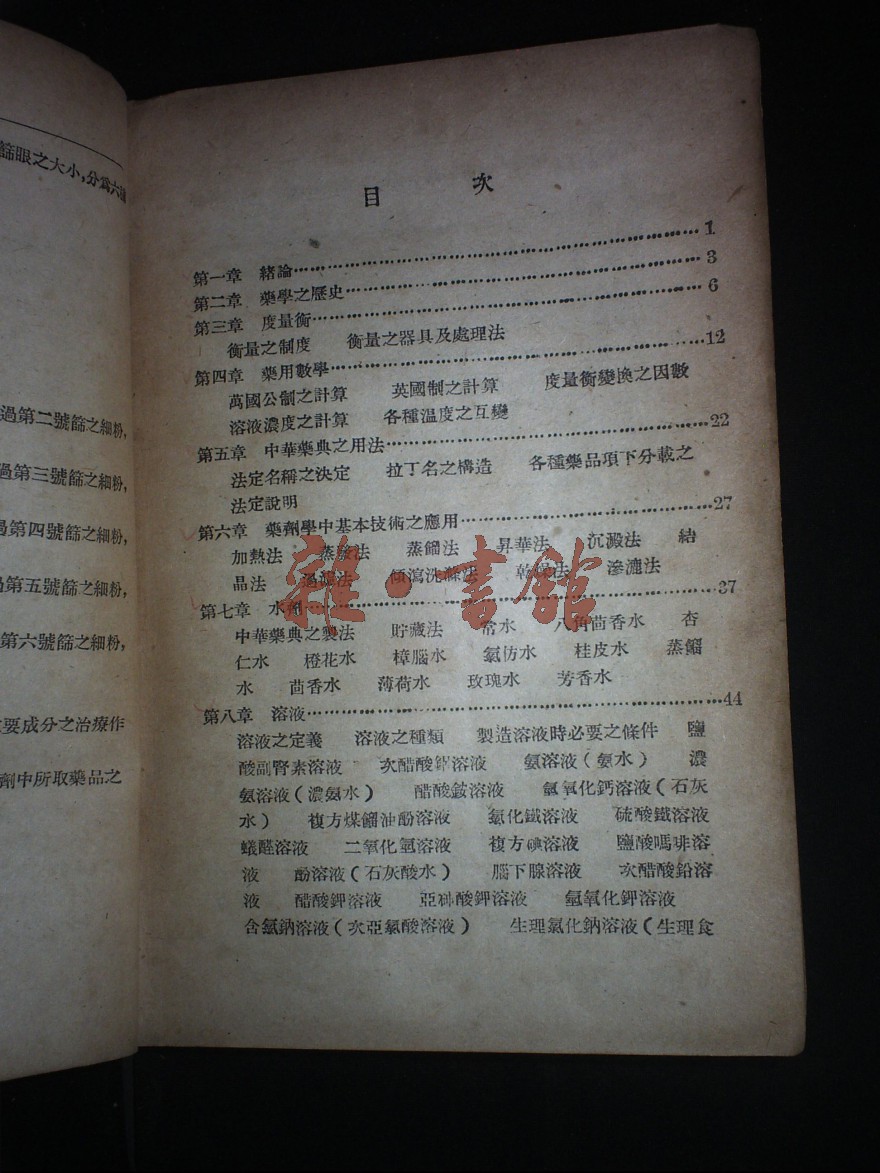 篩眼之大小，分爲六
過第二號篩之細粉，
過第三號篩之細粉，
過第四號篩之細粉，
過第五號篩之細粉，
第六號篩之細粉，
要成分之治療作
劑中所取藥品之
目 次
第一章 緒論…………1
第二章 藥學之歷史…………3
第三章 度量衡…………6
衡量之制度 衡量之器具及處理法
第四章 藥用數學…………12
萬國公制之計算 英國制之計算 度量衡變換之因數
溶液濃度之計算 各種温度之互變
第五章 中華藥典之用法…………22
法定名稱之決定 拉丁名之構造 各種藥品項下分載之
法定說明
第六章 藥劑學中基本技術之應用…………27
加熱法 蒸發法 蒸餾法 昇華法 沉澱法 結
晶法 過濾法 傾瀉洗滌法 乾燥法 滲漉法
第七章 水劑…………37
中華藥典之製法 貯藏法 常水 八角茴香水 杏
仁水 橙花水 樟腦水 氯仿水 桂皮水 蒸餾
水 茴香水 薄荷水 玫瑰水 芳香水
第八章 溶液…………44
溶液之定義 溶液之種類 製造溶液時必要之條件 鹽
酸副腎素溶液 次醋酸鋁溶液 氨溶液（氨水） 濃
氨溶液（濃氨水） 醋酸銨溶液 氫氧化鈣溶液（石灰
水） 複方煤餾油酚溶液 氯化鐵溶液 硫酸鐵溶液
蟻醛溶液 二氧化氫溶液 複方碘溶液 鹽酸嗎啡溶
液 酚溶液（石灰酸水） 腦下腺溶液 次醋酸鉛溶
液 醋酸鉀溶液 亞砷酸鉀溶液 氫氧化鉀溶液
含氯鈉溶液（次亞氯酸溶液） 生理氯化鈉溶液（生理食
雜·書館